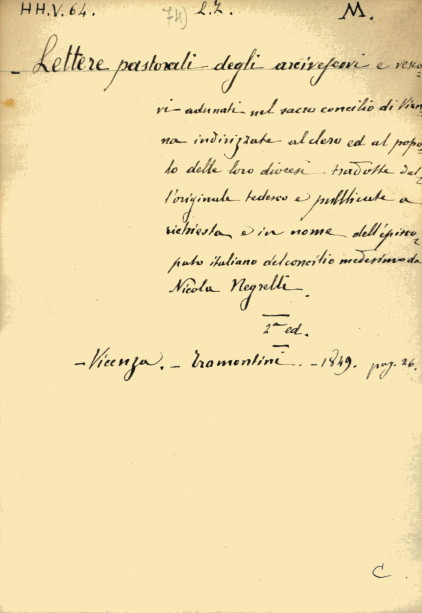 HH.V.64. 74) L.Z. M.
- Lettere pastorali degli arcivescovi e vesco-
vi adunati nel sacro concilio di Vien-
na indirizzate al clero ed al popo-
lo delle loro diocesi tradotte dal-
l'originale tedesco e pubblicate a
richiesta e in nome dell'episco-
pato italiano del concilio medesimo da
Nicola Negrelli.
2ª ed.
- Vicenza. - Tramontini - 1849. pag. 26.
C.